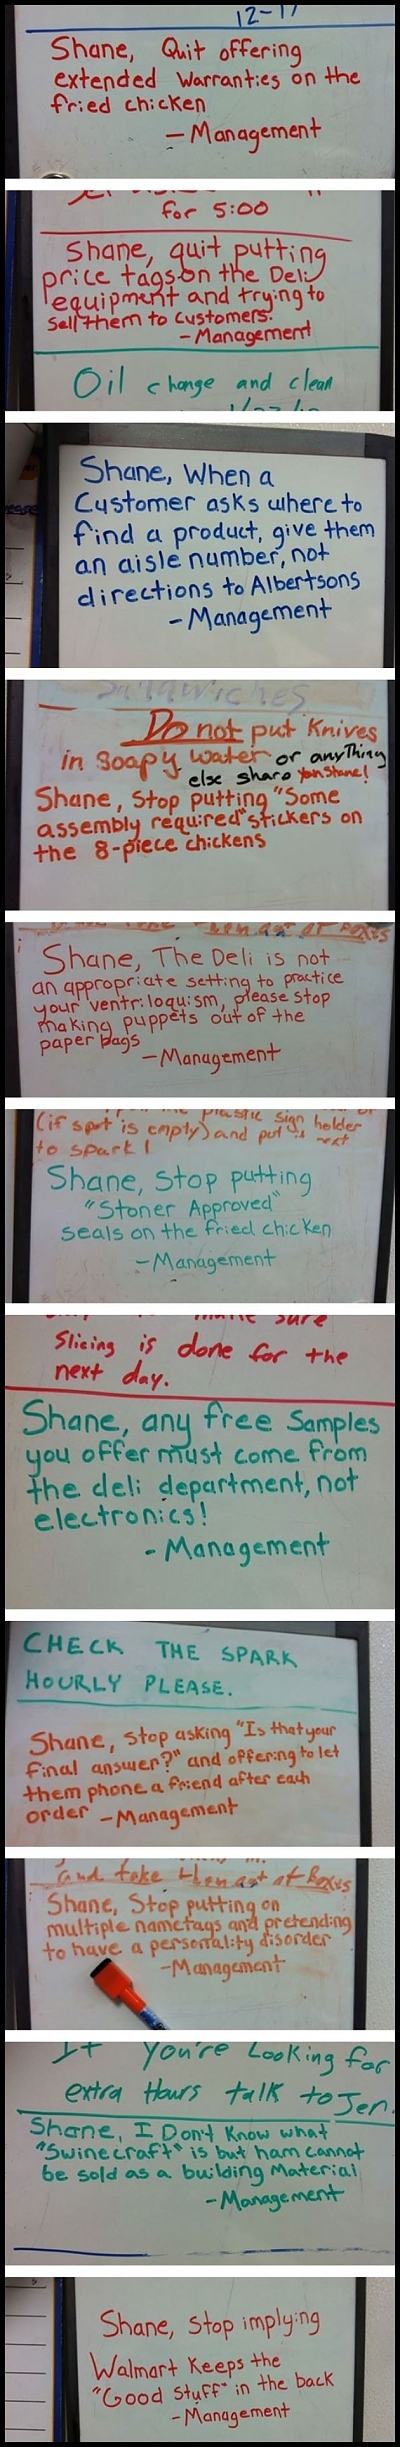 12-17
Shane, Quit offering
extended Warranties on the
fried chicken
- Management
for 5:00
Shane, quit putting
price tags on the Deli
equipment and trying to
sell them to customers.
- Management
Oil change and clean
Shane, When a
Customer asks where to
find a product, give them
an aisle number, not
directions to Albertsons
- Management
Sandwiches
Do not put Knives
in soapy water or anything
else sharp You Shane!
Shane, Stop putting "Some
assembly required" stickers on
the 8-piece chickens
Shane, The Deli is not
an appropriate setting to practice
your ventriloquism, please stop
making puppets out of the
paper bags
- Management
plastic sign holder
(if spot is empty) and put it next
to spark!
Shane, Stop putting
"Stoner Approved"
seals on the fried chicken
- Management
make sure
Slicing is done for the
next day.
Shane, any free Samples
you offer must come from
the deli department, not
electronics!
- Management
CHECK THE SPARK
HOURLY PLEASE.
Shane, Stop asking "Is that your
final answer?" and offering to let
them phone a friend after each
order - Management
and take them out of Boxes
Shane, Stop putting on
multiple nametags and pretending
to have a personality disorder
- Management
If You're Looking for
extra Hours talk to Jen.
Shane, I Don't Know what
"Swinecraft" is but ham cannot
be sold as a building Material
- Management
Shane, Stop implying
Walmart Keeps the
"Good Stuff" in the back
- Management